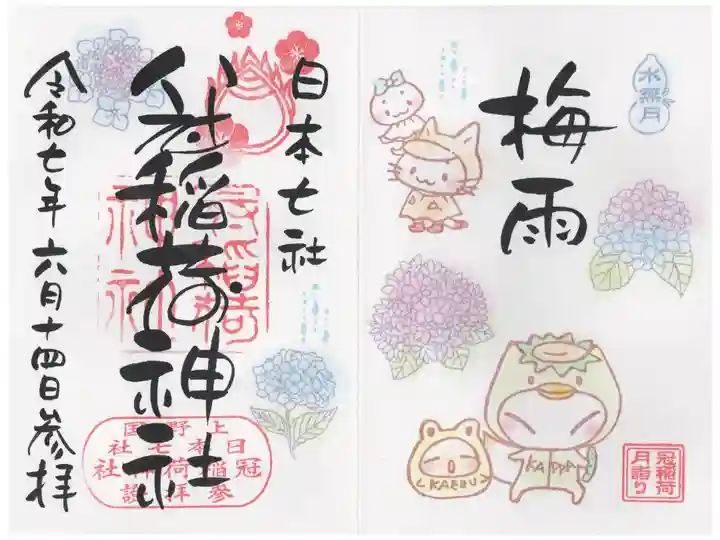 水無月
梅雨
KAPPA
KAERU
冠稲荷
月詣り
日本七社
稲荷神社
上野国
日本七社
冠稲荷神社
参拝證
令和七年六月十四日参拝